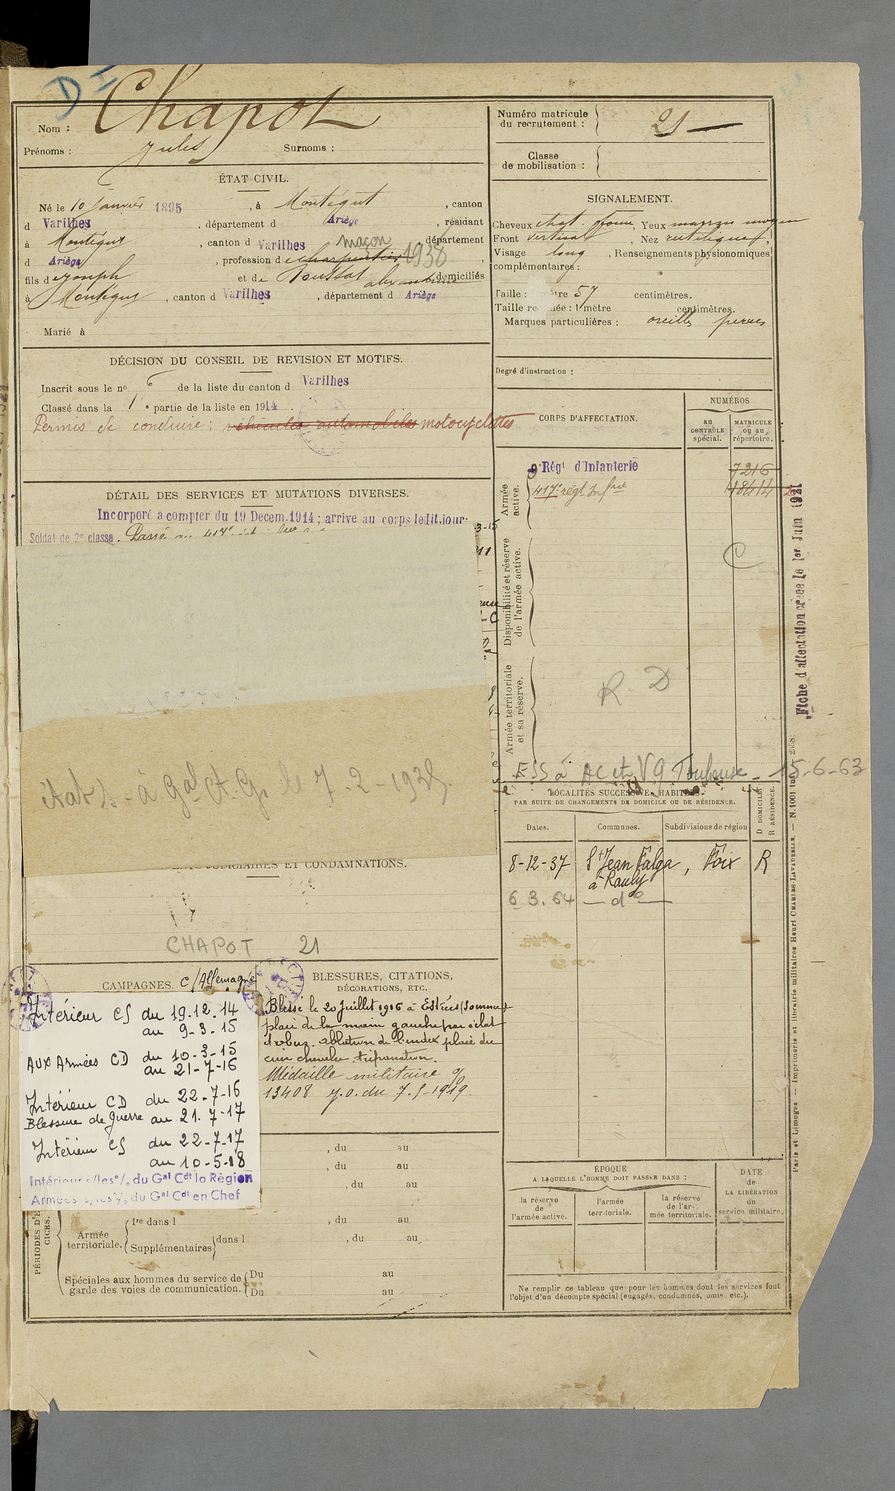 D I
Nom : Chapot
Prénoms : Jules Surnoms :
ÉTAT CIVIL.
Né le 10 Janvier 1895, à Montégut, canton
d Varilhes, département d Ariège, résidant
à Montégut, canton d Varilhes, département
maçon 1938
d Ariège, profession de charpentier
fils de Joseph et de Roussat alexandrine, domiciliés
à Montégut, canton d Varilhes, département d Ariège
Marié à
DÉCISION DU CONSEIL DE REVISION ET MOTIFS.
Inscrit sous le no 6 de la liste du canton d Varilhes
Classé dans la 1e partie de la liste en 1914
Permis de conduire : véhicules automobiles motocyclettes
DÉTAIL DES SERVICES ET MUTATIONS DIVERSES.
Incorporé à compter du 19 Decem. 1914 ; arrive au corps ledit jour.
Soldat de 2e classe. Passé au 417e
état s. - à Gal A.G. le 7-2-1935.
JUDICIAIRES ET CONDAMNATIONS.
CHAPOT 21
CAMPAGNES. C/Allemagne
Intérieur CS du 19.12.14
au 9-3-15
AUX Armées CD du 10-3-15
au 21-7-16
Intérieur CD du 22-7-16
Blessure de Guerre au 21.7-17
Intérieur CS du 22-7-17
au 10-5-18
Intérieur s/les o/. du Gal Cdt la Règion
Armées s/les o/. du Gal Cdt en Chef
BLESSURES, CITATIONS,
DÉCORATIONS, ETC.
Blessé le 20 Juillet 1916 à Estrées (Somme)
plaie de la main gauche par éclat
d'obus. ablation de l'index plaie du
cuir chevelu trépanation.
Médaille militaire
13408 J.O. du 7.5-1919.
, du au
, du au
, du au
PÉRIODES D'EXERCICES.
Armée territoriale. 1re dans l , du au
Supplémentaires dans l , du au
Spéciales aux hommes du service de garde des voies de communication. Du au
Du au
Numéro matricule du recrutement : 21
Classe de mobilisation :
SIGNALEMENT.
Cheveux chat. foncé, Yeux marron moyen
Front vertical, Nez rectiligne,
Visage long, Renseignements physionomiques
complémentaires :
Taille : 1 mètre 57 centimètres.
Taille rectifiée : 1 mètre centimètres.
Marques particulières : oreilles percées
Degré d'instruction :
CORPS D'AFFECTATION.
NUMÉROS
au CONTRÔLE spécial.
MATRICULE ou au répertoire.
Armée active.
9e Régt d'Infanterie 7216
417e régt Infrie 18414
Disponibilité et réserve de l'armée active.
C
Armée territoriale et sa réserve.
R D
ESS à AC et VG Toulouse - 15-6-63
LOCALITÉS SUCCESSIVES HABITÉES
PAR SUITE DE CHANGEMENTS DE DOMICILE OU DE RÉSIDENCE.
Dates. Communes. Subdivisions de région D DOMICILE R RÉSIDENCE.
8-12-37 St Jean Falga, Foix R
à Rauly
6.3.64 — do —
ÉPOQUE
A LAQUELLE L'HOMME DOIT PASSER DANS :
la réserve de l'armée active.
l'armée territoriale.
la réserve de l'armée territoriale.
DATE
de
LA LIBÉRATION
du
service militaire.
Ne remplir ce tableau que pour les hommes dont les services font
l'objet d'un décompte spécial (engagés, condamnés, omis, etc.).
Fiche d'affectation créée le 1er Juin 1921
Paris et Limoges. — Imprimerie et librairie militaires Henri CHARLES-LAVAUZELLE. — N. 1001